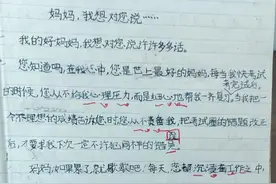 妈妈,我想对您说……
我的好妈妈,我想对您说许许多多话。
您知道吗,在我心中,您是世上最好的妈妈,每当我快考试
的时候,您从不给我心理压力,而是细心地帮我一齐复习。当我把一
个不理想的成绩告诉您时,您从不责备我,把考试卷的错题改正
后,才要求我下次一定不许犯同样的错
妈妈,如果累了,就歇歇吧!每天,您都沉浸着工作之中